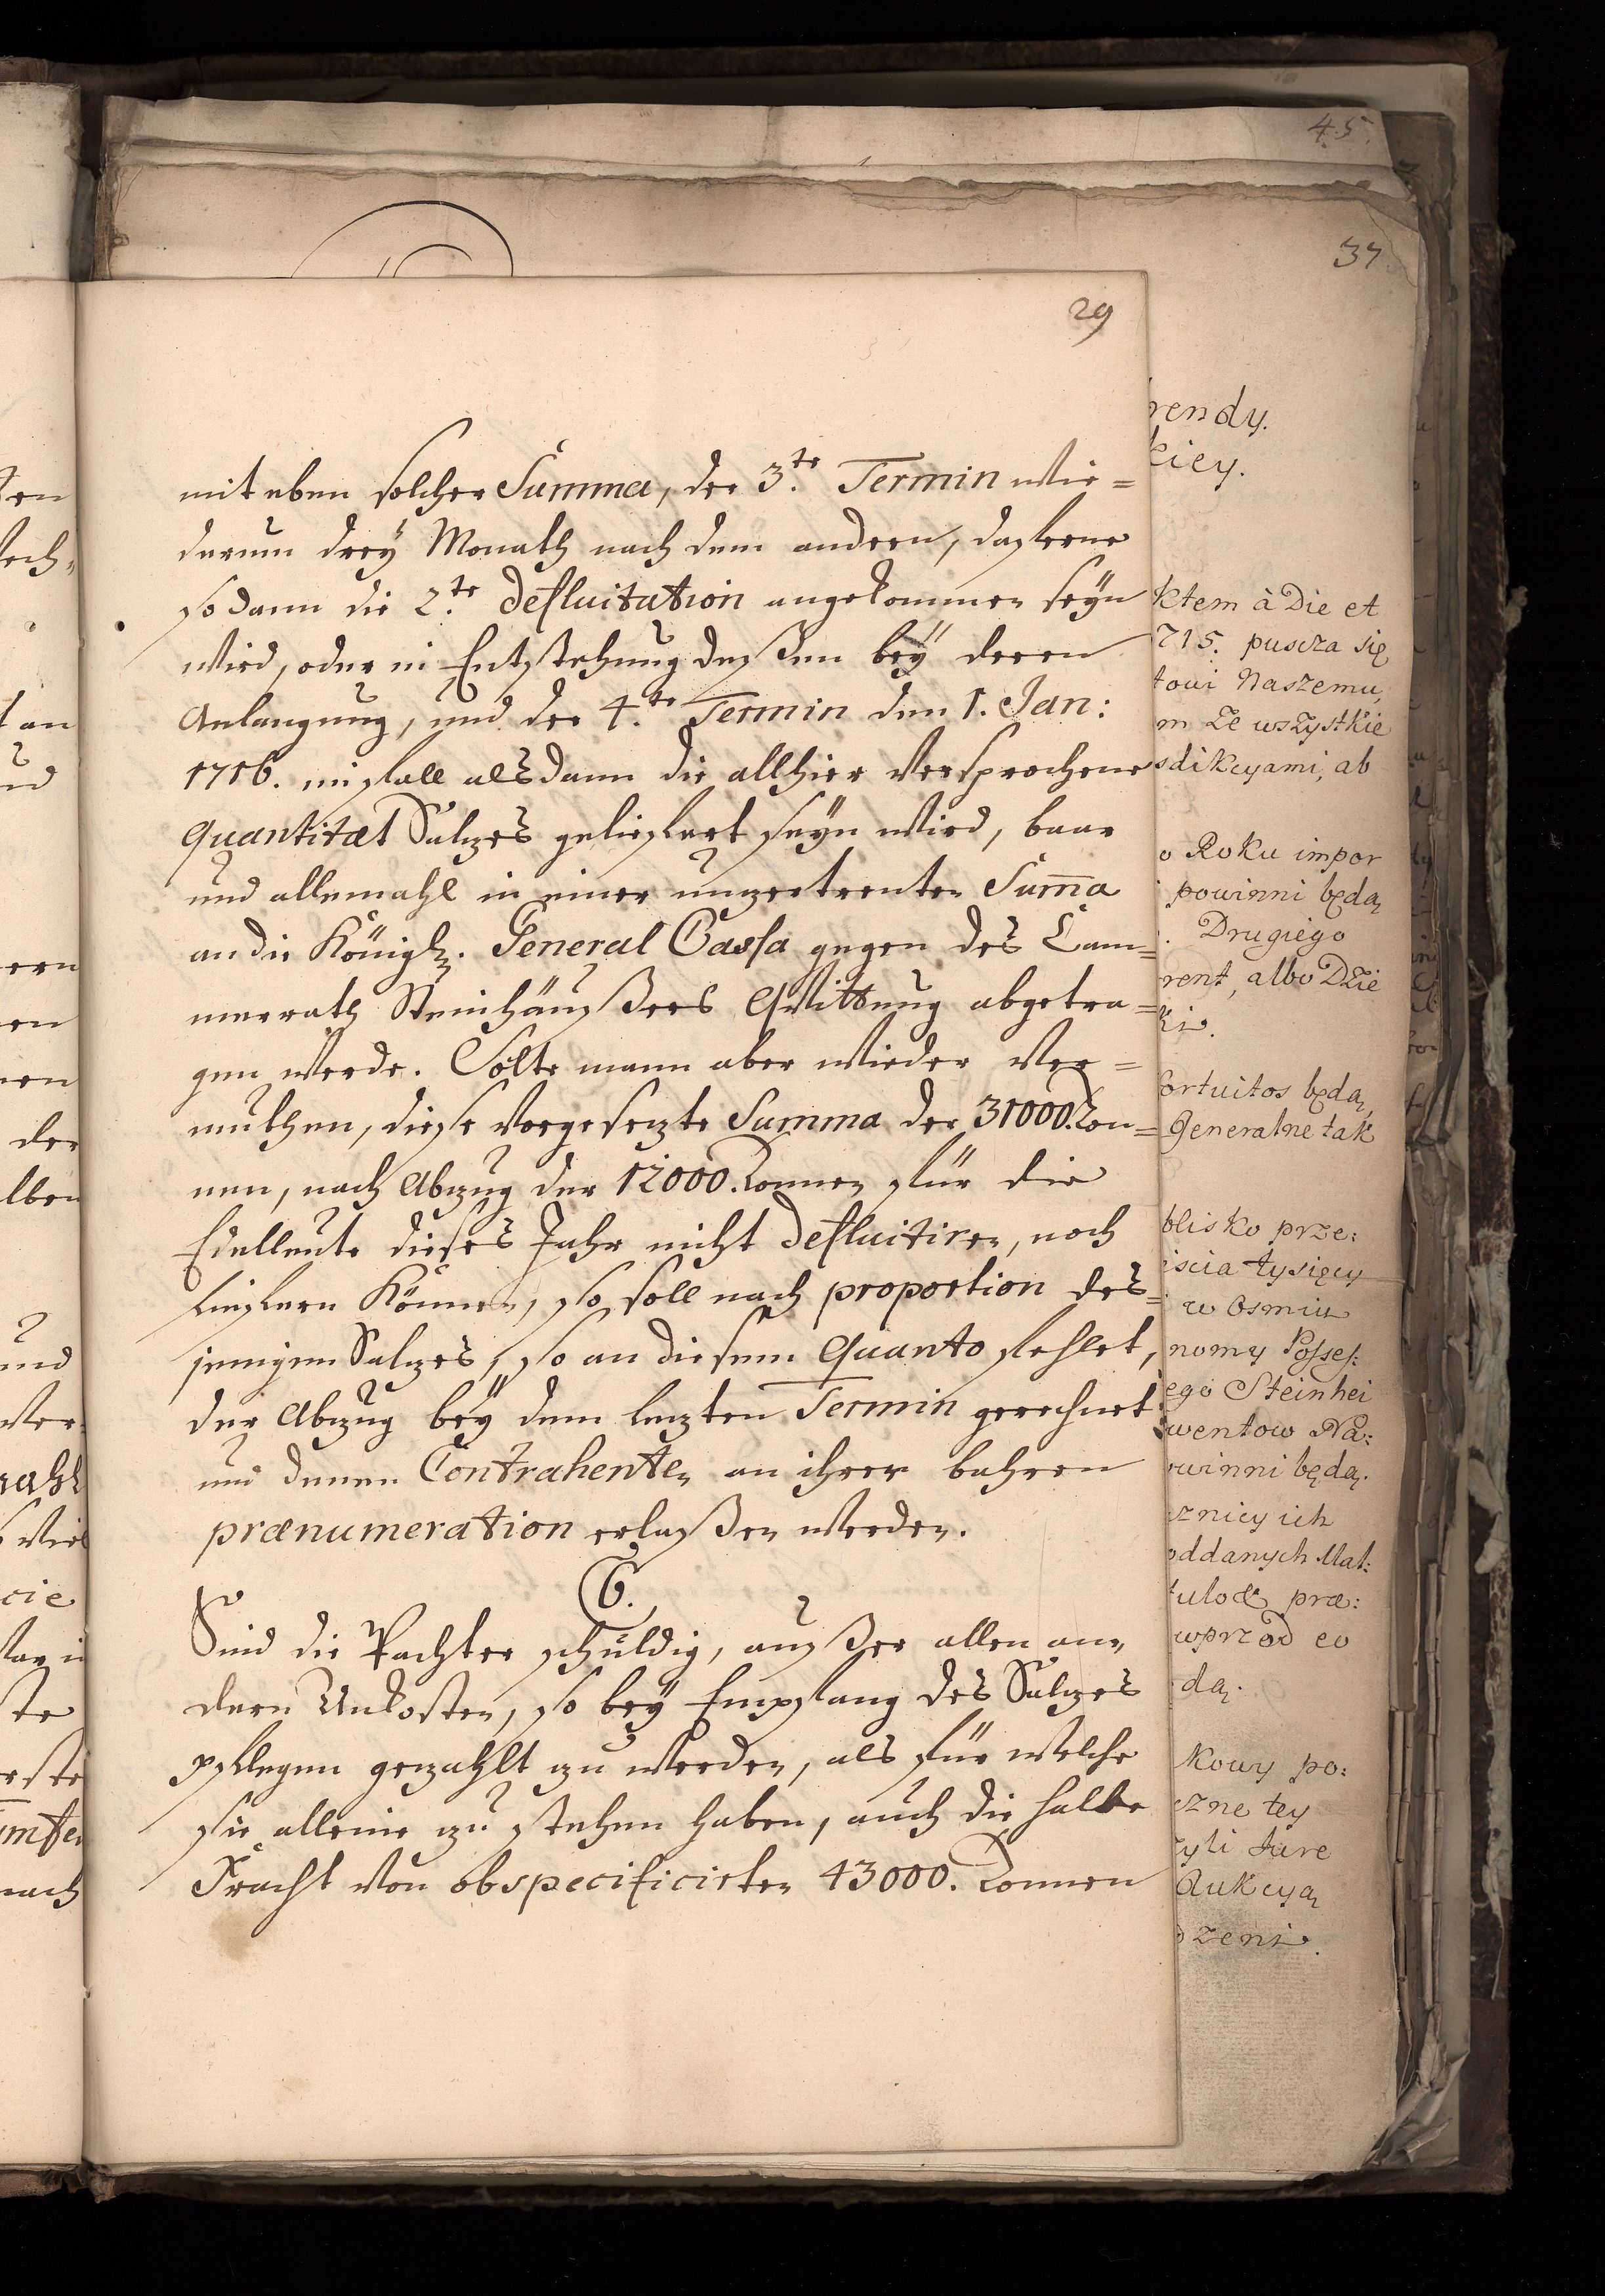 45.
37
29
mit eben solcher Summa, der 3.te Termin wie=
derum drey Monath nach dem andern, daferne
so dann die 2.te defluitation angekommen seyn
wird, oder in Entstehung deßen bey deren
Anlangung, und der 4.te Termin den 1. Jan:
1716. im fall alsdann die allhier versprochene
quantitæt Saltzes geliefert seyn wird, baar
und allemahl in einer unzertrenten Sum̄a
an die Königl. General Cassa gegen des Cam=
merrath Steinhäußers Qvittung abgetra=
gen werde. Solte mann aber wieder ver=
muthen, diese vorgesezte Summa der 31000. Ton=
nen, nach Abzug der 12000. Tonnen für die
Edelleute dieses Jahr nicht defluitiren, noch
liefern können, so soll nach proportion des=
jenigen Saltzes, so an diesem Quanto fehlet,
der Abzug bey dem lezten Termin gerechnet
und denen Contrahenten an ihrer bahren
prænumeration erlaßen werden.
6.
Sind die Pachter schuldig, außer allen an=
dern Unkosten, so bey Empfang des Saltzes
pflegen gezahlt zu werden, als für welche
sie alleine zu stehen haben, auch die halbe
Fracht von obspecificirten 43000. Tonnen
rendy.
kiey.
ktem à Die et
715. puscza się
towi Naszemu,
m Ze wszystkie
sdikcyami, ab
o Roku impor
powinni będą
Drugiego
rent, albo Dzie
ki.
ortuitos będą,
Generalne tak
blisko prze:
iscia tysięcy
w Osmiu
nomy Posses:
ego Steinhei
wentow Na:
owinni będą.
sznicy ich
oddanych Mat:
tulo præ:
wprzod eo
dą.
kowy po:
szne tey
zyli Jure
Aukcyą
dzeni.